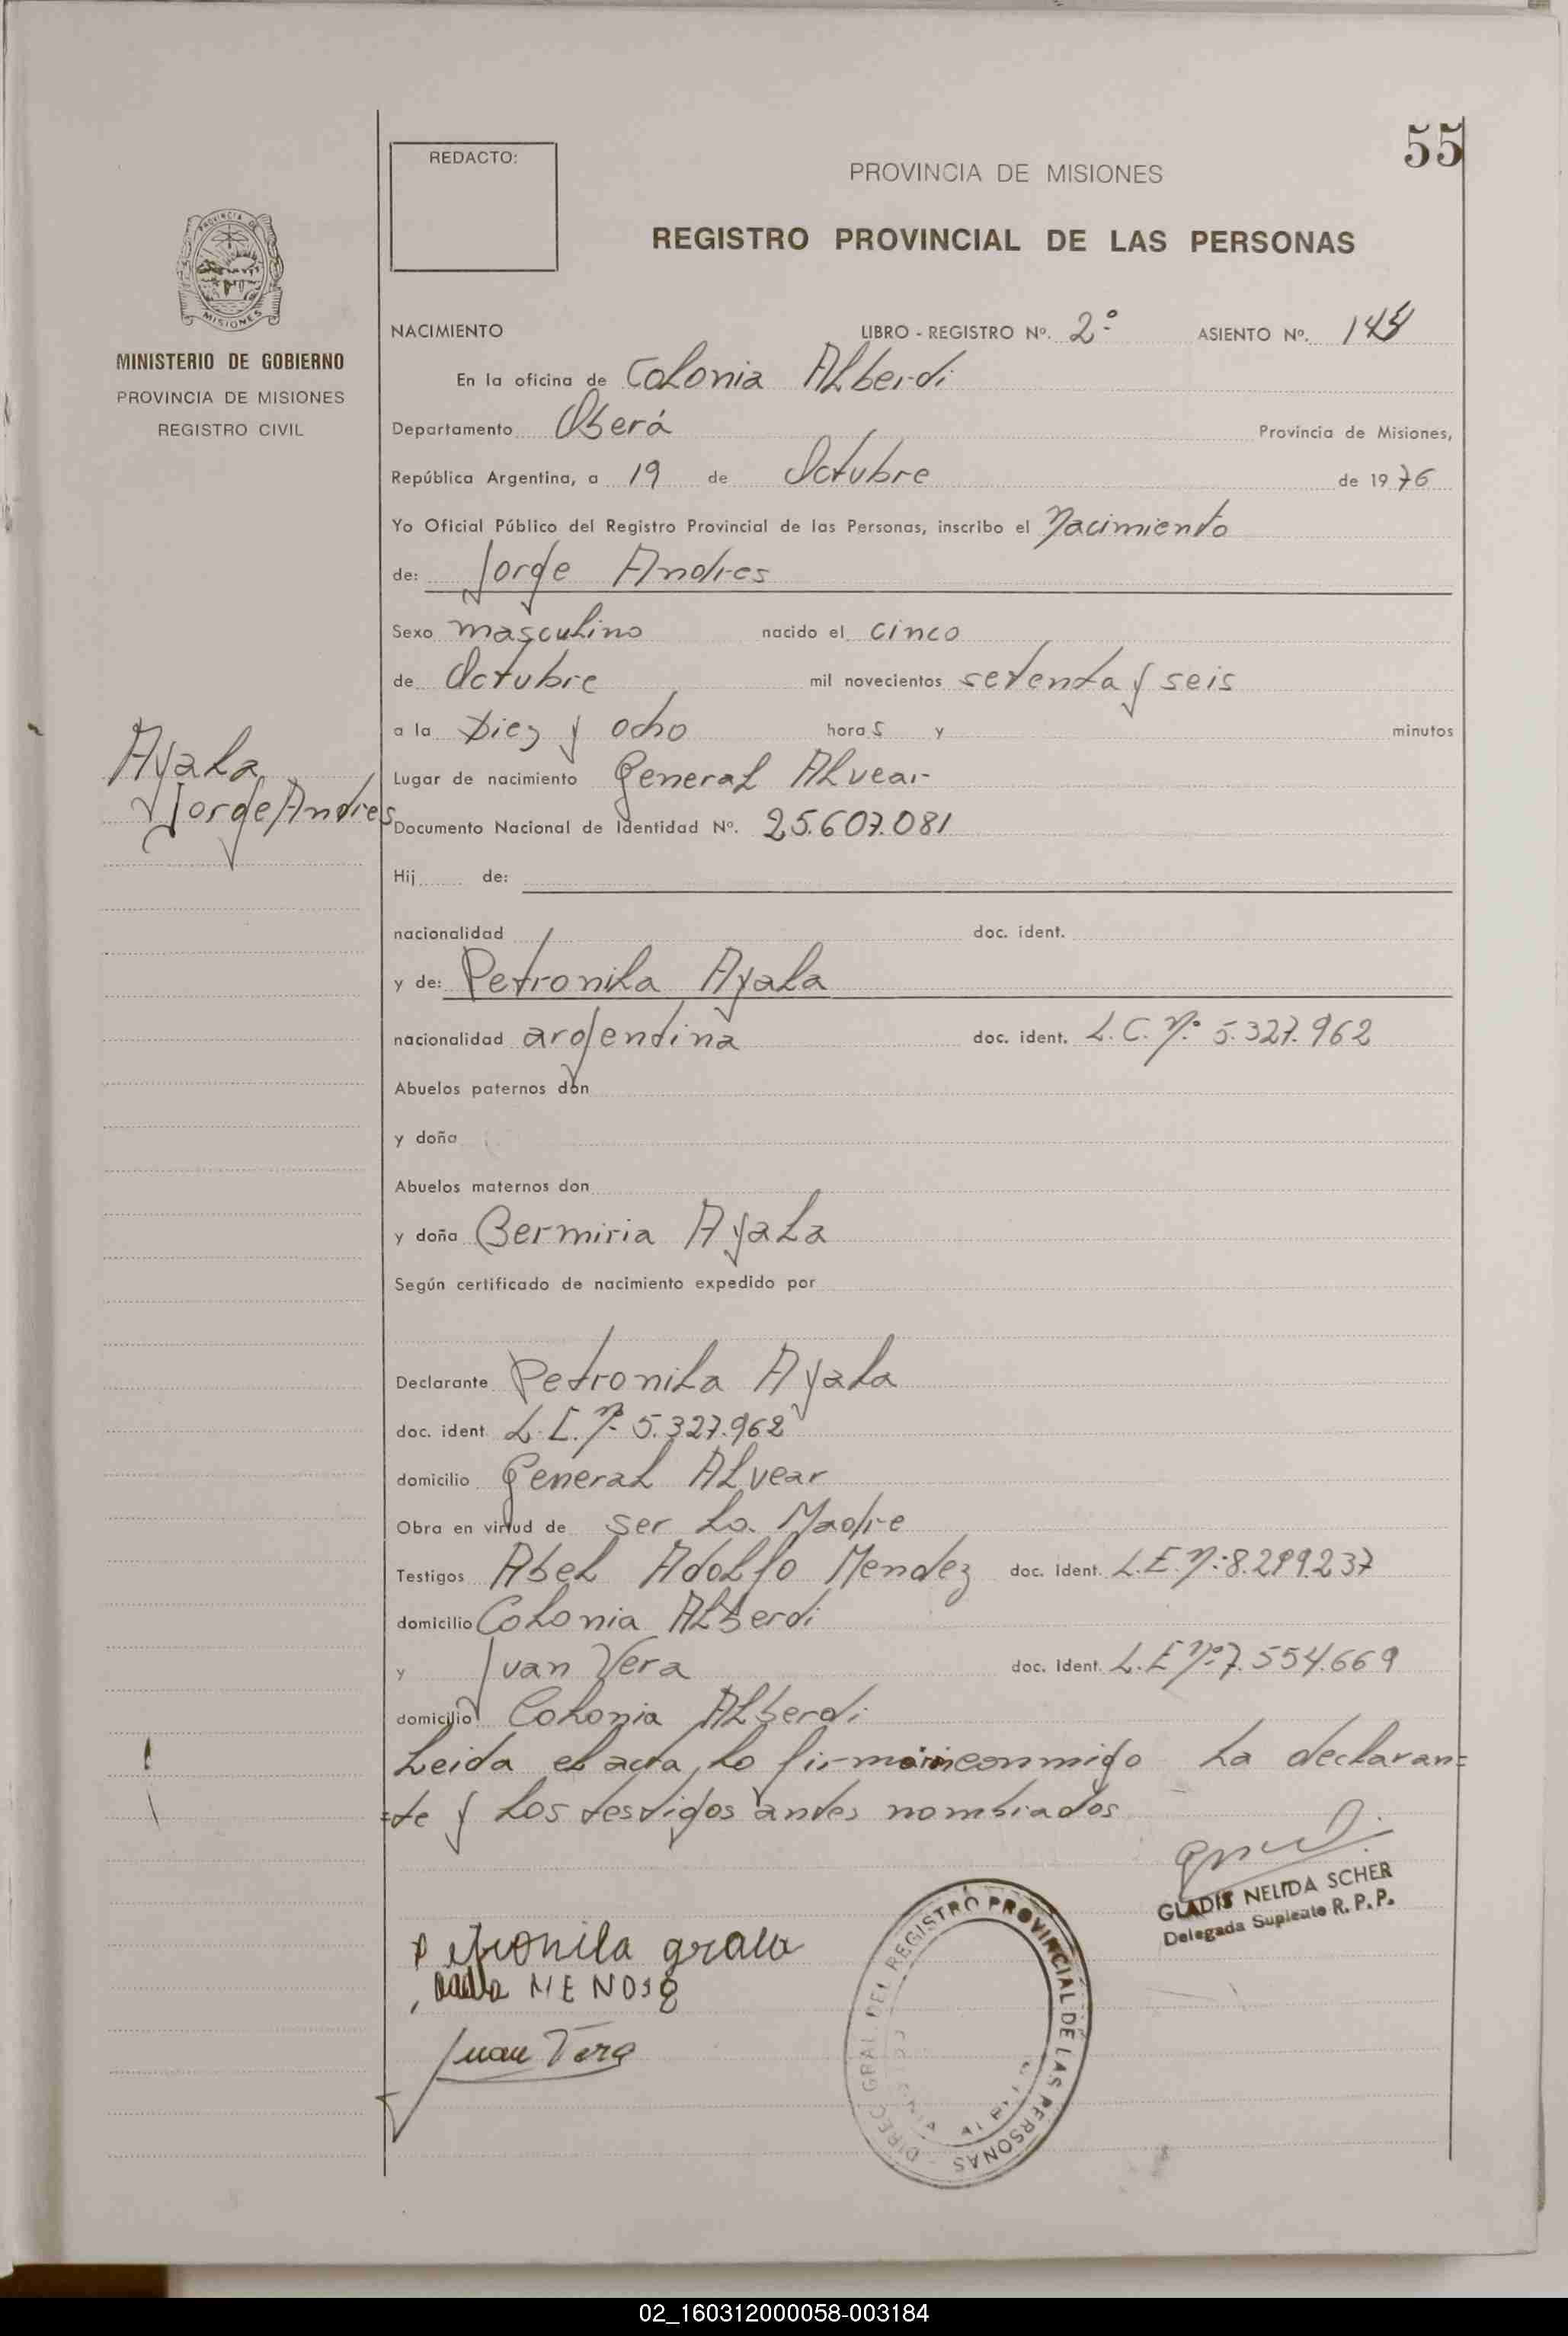 55
REDACTO:
PROVINCIA DE MISIONES
REGISTRO PROVINCIAL DE LAS PERSONAS
PROVINCIA DE
MISIONES
MINISTERIO DE GOBIERNO
PROVINCIA DE MISIONES
REGISTRO CIVIL
NACIMIENTO LIBRO - REGISTRO Nº. 2º ASIENTO Nº.
En la oficina de Colonia Alberdi
Departamento Oberá Provincia de Misiones,
República Argentina, a 19 de Octubre de 1976
Yo Oficial Público del Registro Provincial de las Personas, inscribo el Nacimiento
de: Jorge Andres
Sexo masculino nacido el cinco
de Octubre mil novecientos setenta y seis
a la Diez y ocho horas y minutos
Ayala
Jorge Andres
Lugar de nacimiento General Alvear
Documento Nacional de Identidad Nº. 25.607.081
Hij de:
nacionalidad doc. ident.
y de: Petronila Ayala
nacionalidad argentina doc. ident. L.C. Nº 5.327.962
Abuelos paternos don
y doña
Abuelos maternos don
y doña Bermiria Ayala
Según certificado de nacimiento expedido por
Declarante Petronila Ayala
doc. ident. L.C. Nº 5.327.962
domicilio General Alvear
Obra en virtud de ser La Madre
Testigos Abel Adolfo Mendez doc. Ident. L.E. Nº 8.299.237
domicilio Colonia Alberdi
y Juan Vera doc. Ident. L.E Nº 7.554.669
domicilio Colonia Alberdi
Leida el acta, Lo firman conmigo La declaran=
=te y Los testigos antes nombrados
GLADIS NELIDA SCHER
Delegada Suplente R. P. P.
Petronila
MENDSE
Juan Vera
DIREC. GRAL. DEL REGISTRO PROVINCIAL DE LAS PERSONAS
02_160312000058-003184